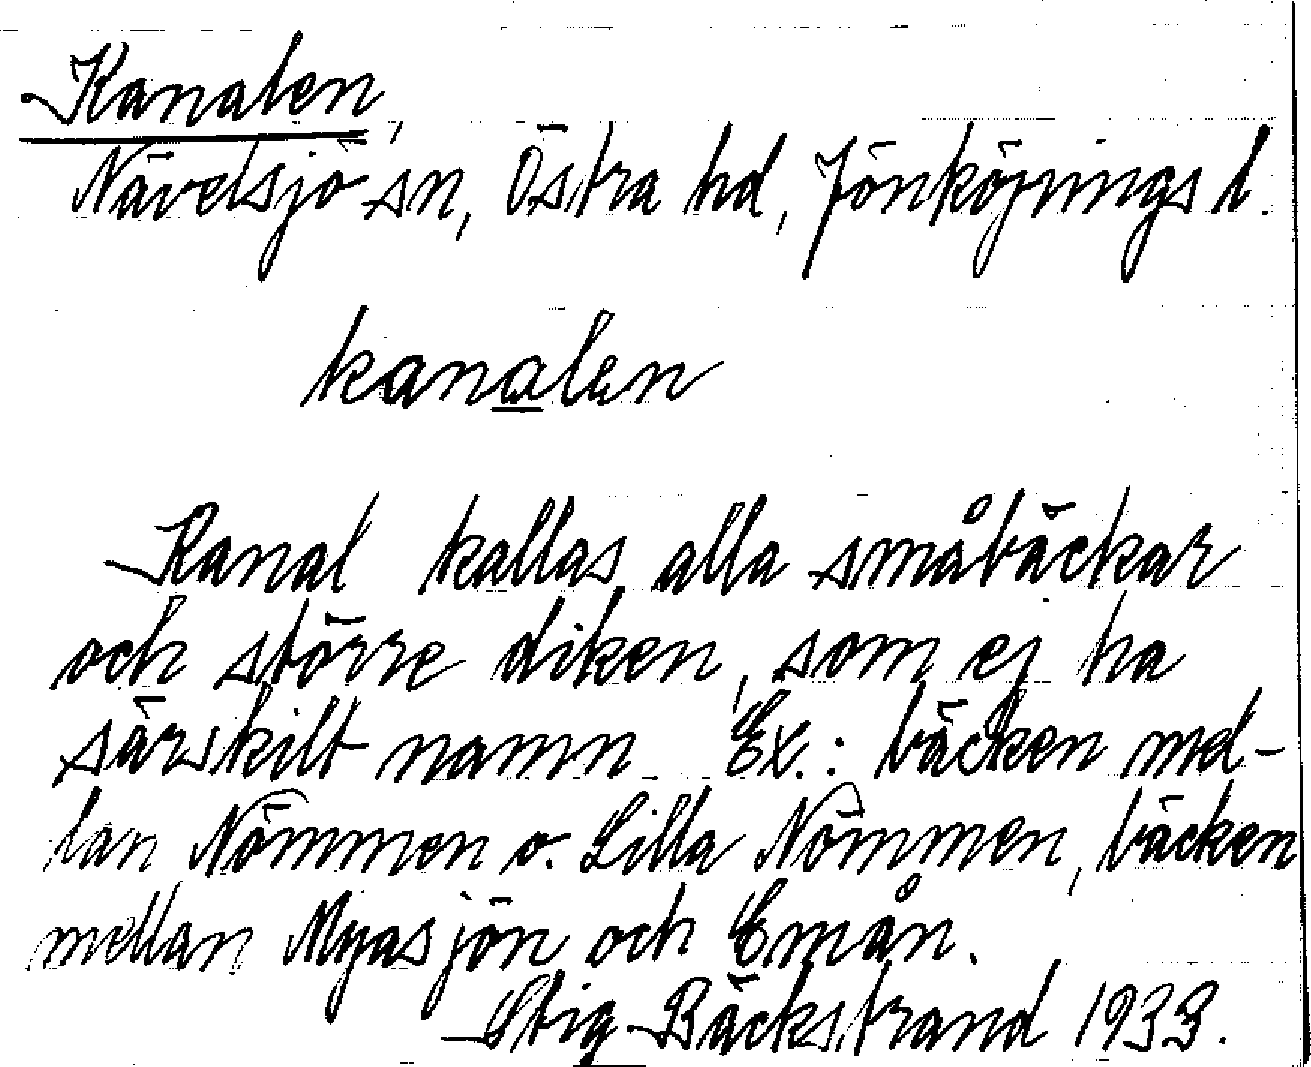 Kanalen,
Nävelsjö sn, Östra hd, Jönköpings l.
kanalen
Kanal kallas alla småbäckar
och större diken, som ej ha
särskilt namn Ex.: bäcken mel-
lan Nömmen o. Lilla Nömmen, bäcken
mellan Myasjön och Emån.
Stig Bäckstrand 1933.